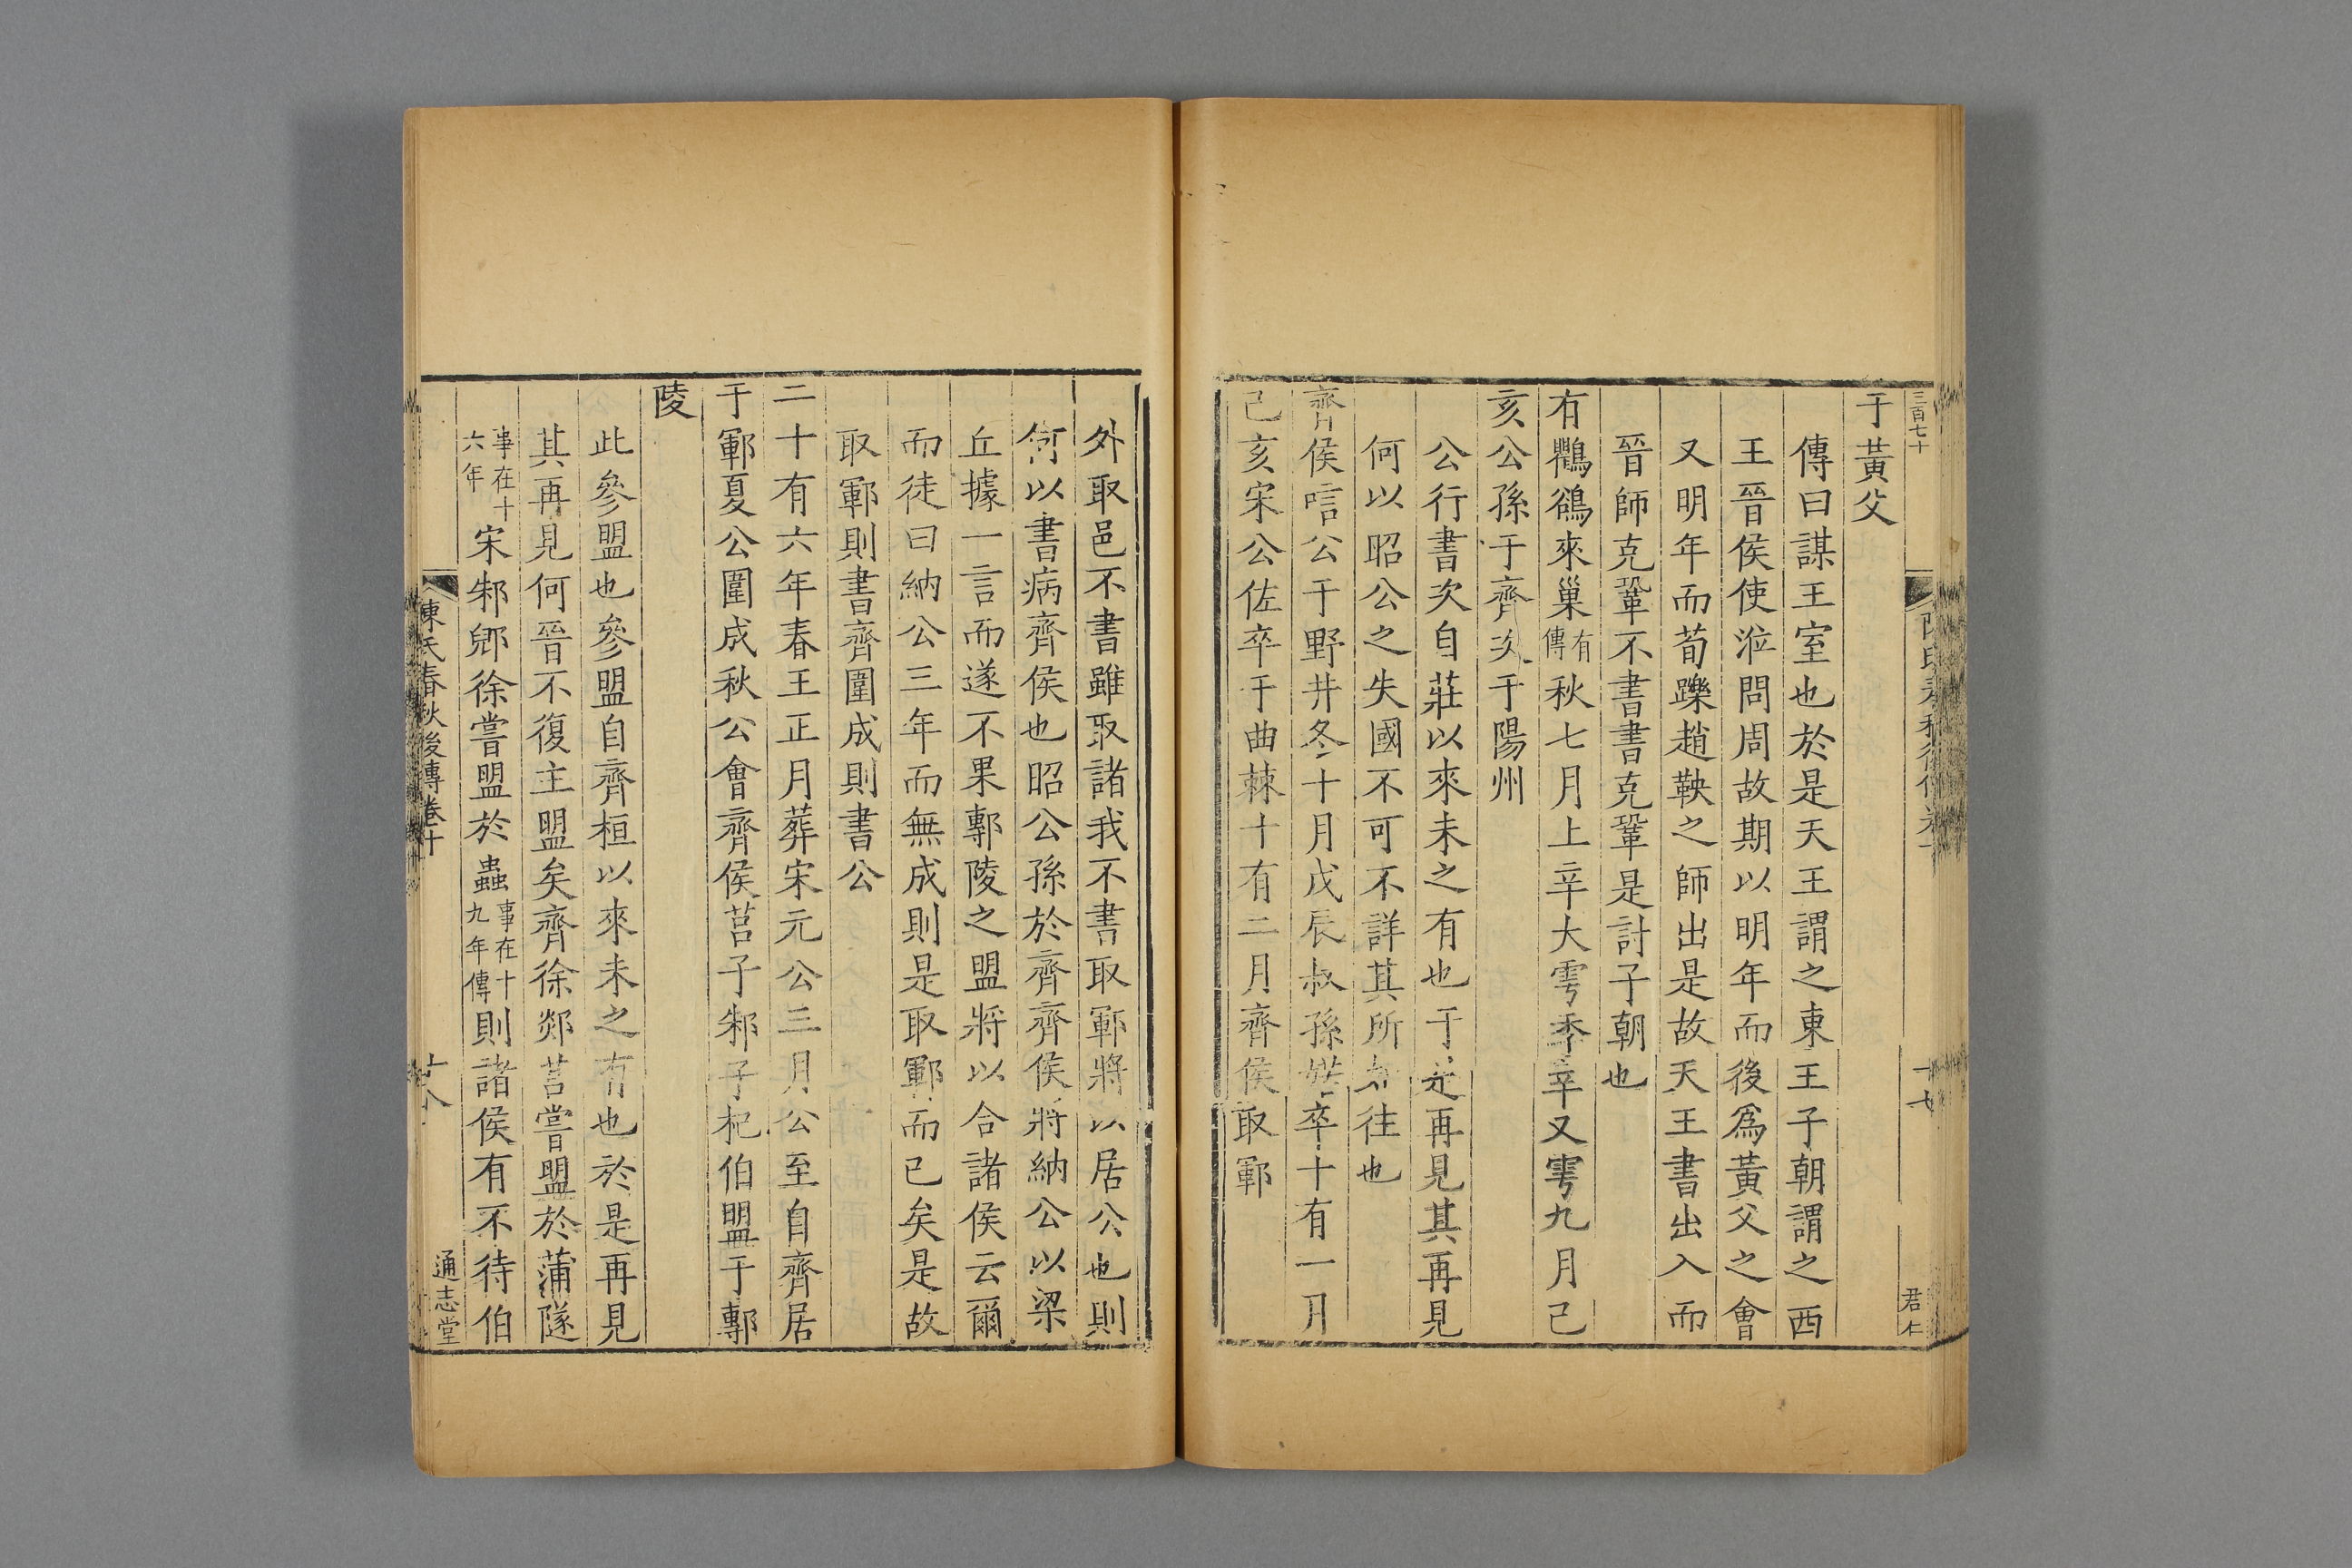 三百七十
君仁
于黃父
傳曰謀王室也於是天王謂之東王子朝謂之西
王晉侯使涖問周故期以明年而後爲黃父之會
又明年而荀躒趙鞅之師出是故天王書出入而
晉師克鞏不書書克鞏是討子朝也
有鸜鵒來巢有傳秋七月上辛大雩季辛又雩九月己
亥公孫于齊次于陽州
公行書次自莊以來未之有也于是再見其再見
何以昭公之失國不可不詳其所如往也
齊侯唁公于野井冬十月戊辰叔孫婼卒十有一月
己亥宋公佐卒于曲棘十有二月齊侯取鄆
外取邑不書雖取諸我不書取鄆將以居公也則
何以書病齊侯也昭公孫於齊齊侯將納公以梁
丘據一言而遂不果鄟陵之盟將以合諸侯云爾
而徒曰納公三年而無成則是取鄆而已矣是故
取鄆則書齊圍成則書公
二十有六年春王正月葬宋元公三月公至自齊居
于鄆夏公圍成秋公會齊侯莒子邾子杞伯盟于鄟
陵
此參盟也參盟自齊桓以來未之有也於是再見
其再見何晉不復主盟矣齊徐郯莒嘗盟於蒲隧
事在十六年宋邾郳徐嘗盟於蟲事在十九年傳則諸侯有不待伯
陳氏春秋後傳卷十
廿八
通志堂